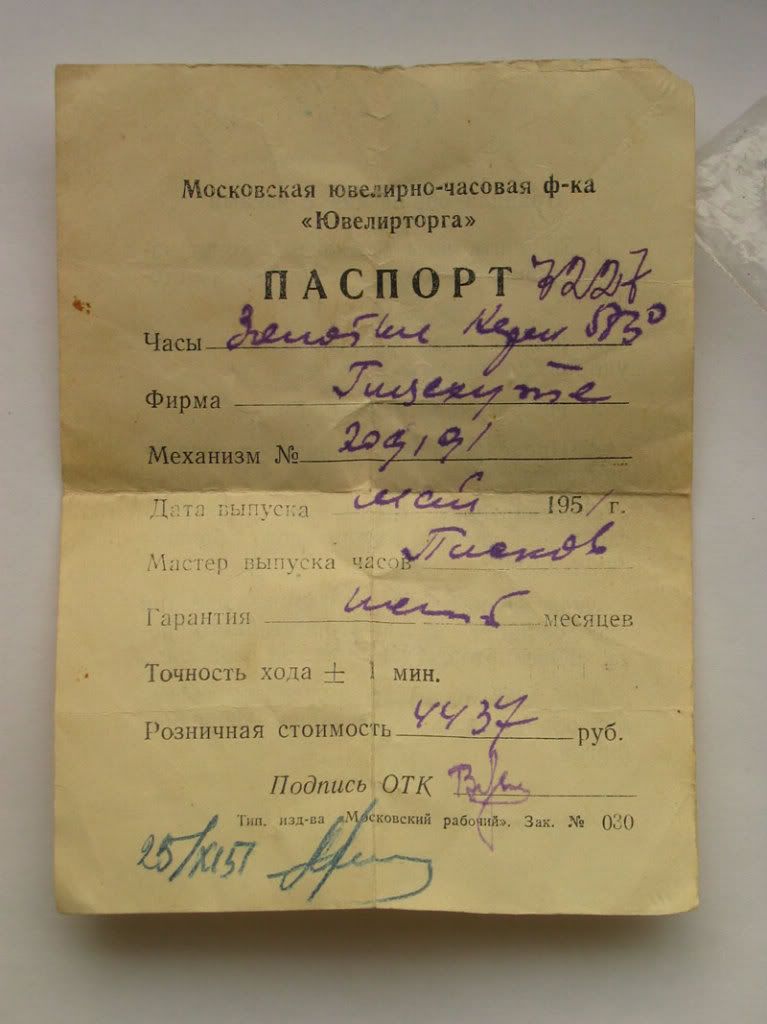 Московская ювелирно-часовая ф-ка
«Ювелирторга»
ПАСПОРТ 7227
Часы Золотые 583°
Фирма
Механизм № 209191
Дата выпуска май 1951 г.
Мастер выпуска часов Писков
Гарантия шесть месяцев
Точность хода ± 1 мин.
Розничная стоимость 4437 руб.
Подпись ОТК
Тип. изд-ва «Московский рабочий». Зак. № 030
25/XI51